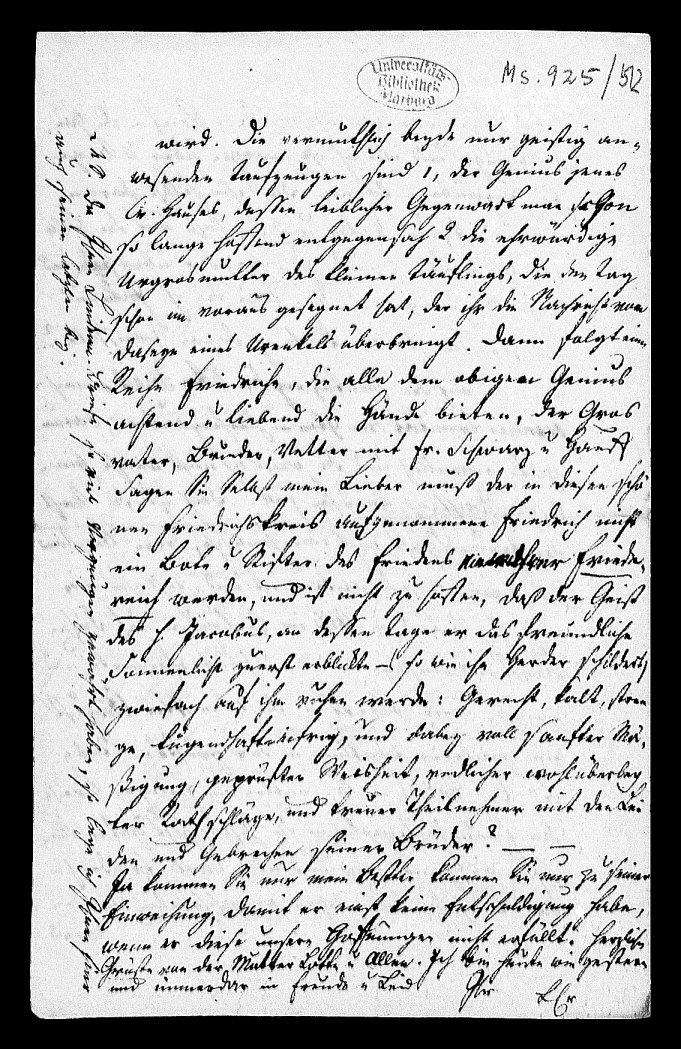 Universitäts-
Bibliothek
Marburg
Ms. 925/512
wird. Die vermuthlich beyde nur geistig an-
wesenden Taufzeugen sind 1, der Genius jenes
Hauses, dessen leiblicher Gegenwart man schon
so lange hoffend entgegensah 2, die ehrwürdige
Urgrosmutter des kleinen Täuflings, die den Tag
schon im voraus gesegnet hat, der ihr die Nachricht vom
Daseyn eines Urenkels überbringt. Dann folgt eine
Reihe Friedriche, die alle dem obigen Genius
achtend u liebend die Hände bieten, der Gros
vater, Bruder, Vetter mit Fr. Schwarz u Hauff
Sagen Sie Selbst mein Lieber muß der in diesen schö
nen Friedrichskreis aufgenommene Friedrich nicht
ein Bote u Stifter des Friedens Friede-
reich werden, und ist nicht zu hoffen, daß der Geist
des h. Jacobus, an dessen Tage er das freundliche
Sonnenlicht zuerst erblickte – so wie ihn Herder schildert,
zwiefach auf ihm ruhen werde: Gerecht, kalt, stren
ge, tugendhafteifrig, und dabey voll sanfter Mä-
ßigung, geprüfter Weisheit, redlicher wohlüberleg
ter Rathschläge, und treuer Theilnehmer mit den Lei
den und Gebrechen seiner Brüder? — —
Ja kommen Sie nur mein Bester kommen Sie nur zu seiner
Einweihung, damit er einst keine Entschuldigung habe,
wenn er diese unsere Hoffnungen nicht erfüllt. Herzliche
Grüße von der Mutter Lotte u Allen. Ich bin heute wie gestern
und immerdar in Freude u Leid Ihr
Da Ihnen Briefe so viel Vergnügen gewährt haben, so lege ich Ihnen hier
auch seinen letzten bey.